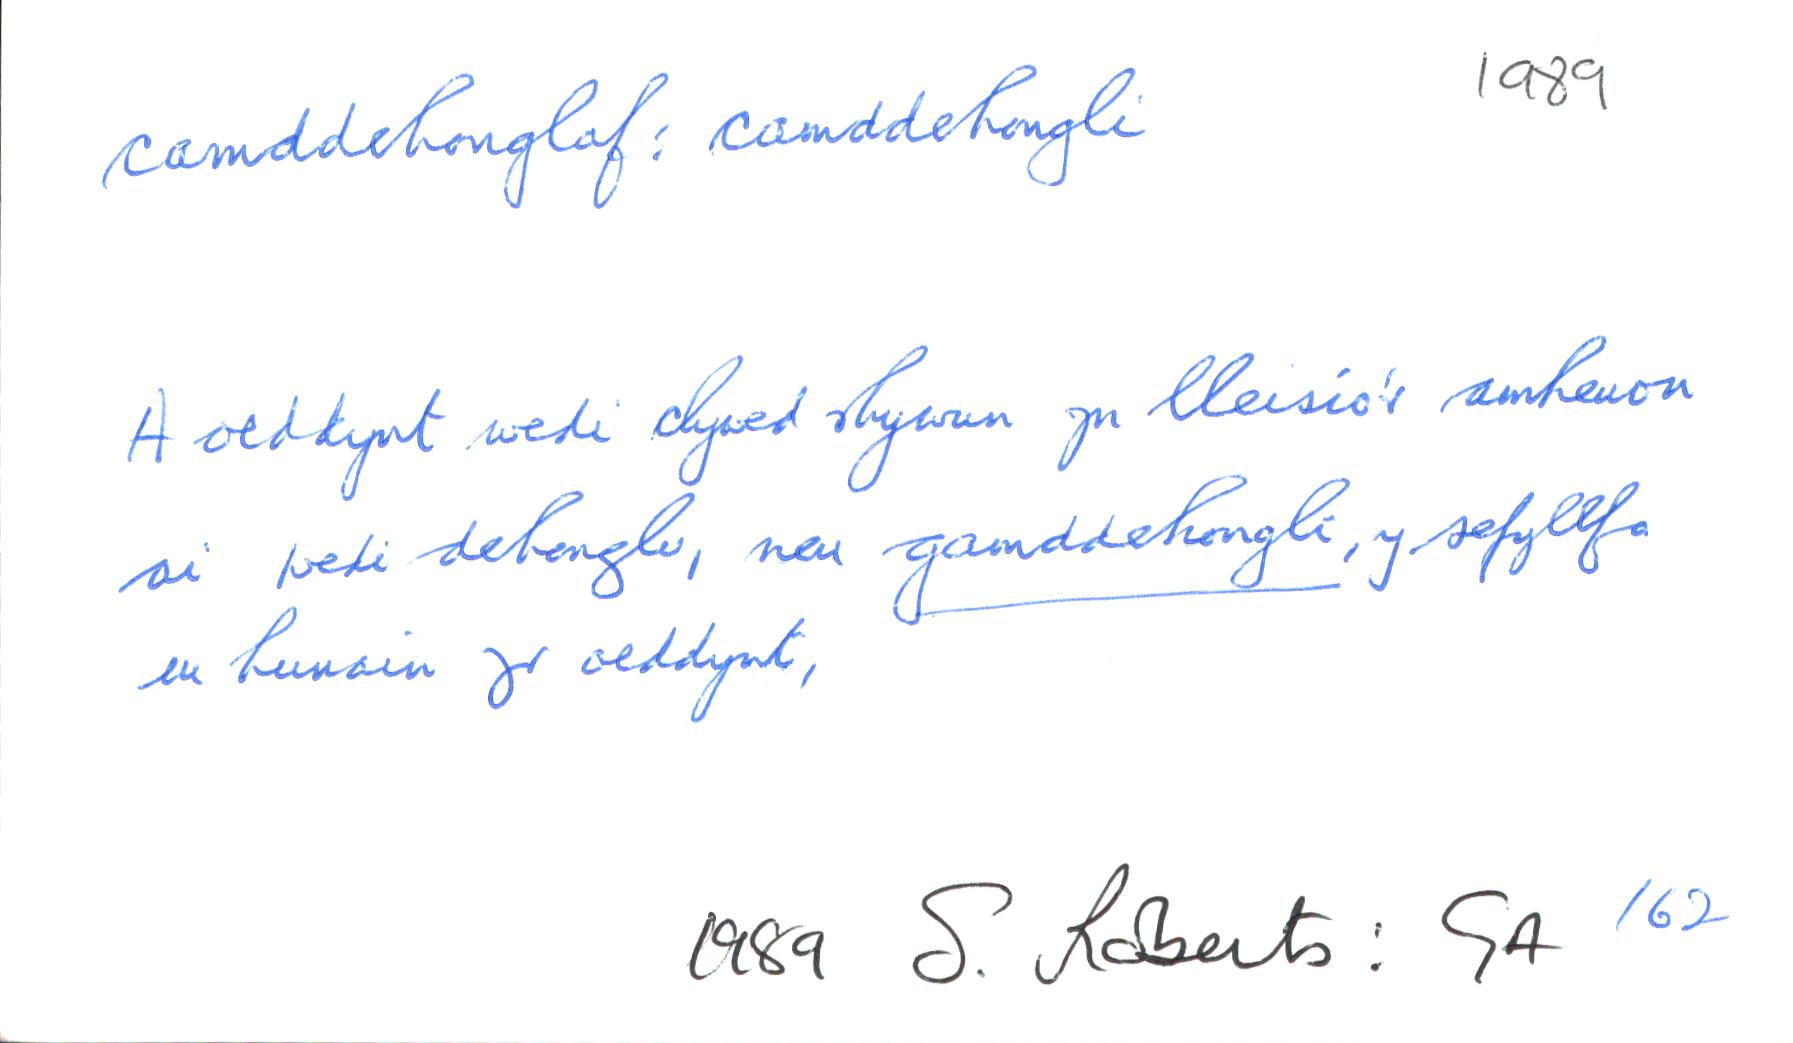 1989
camddehonglaf: camddehongli
A oeddynt wedi clywed rhywun yn lleisio'r amheuon
ai wedi dehonglu, neu gamddehongli, y sefyllfa
eu hunain yr oeddynt,
1989 S. Roberts: GA 162